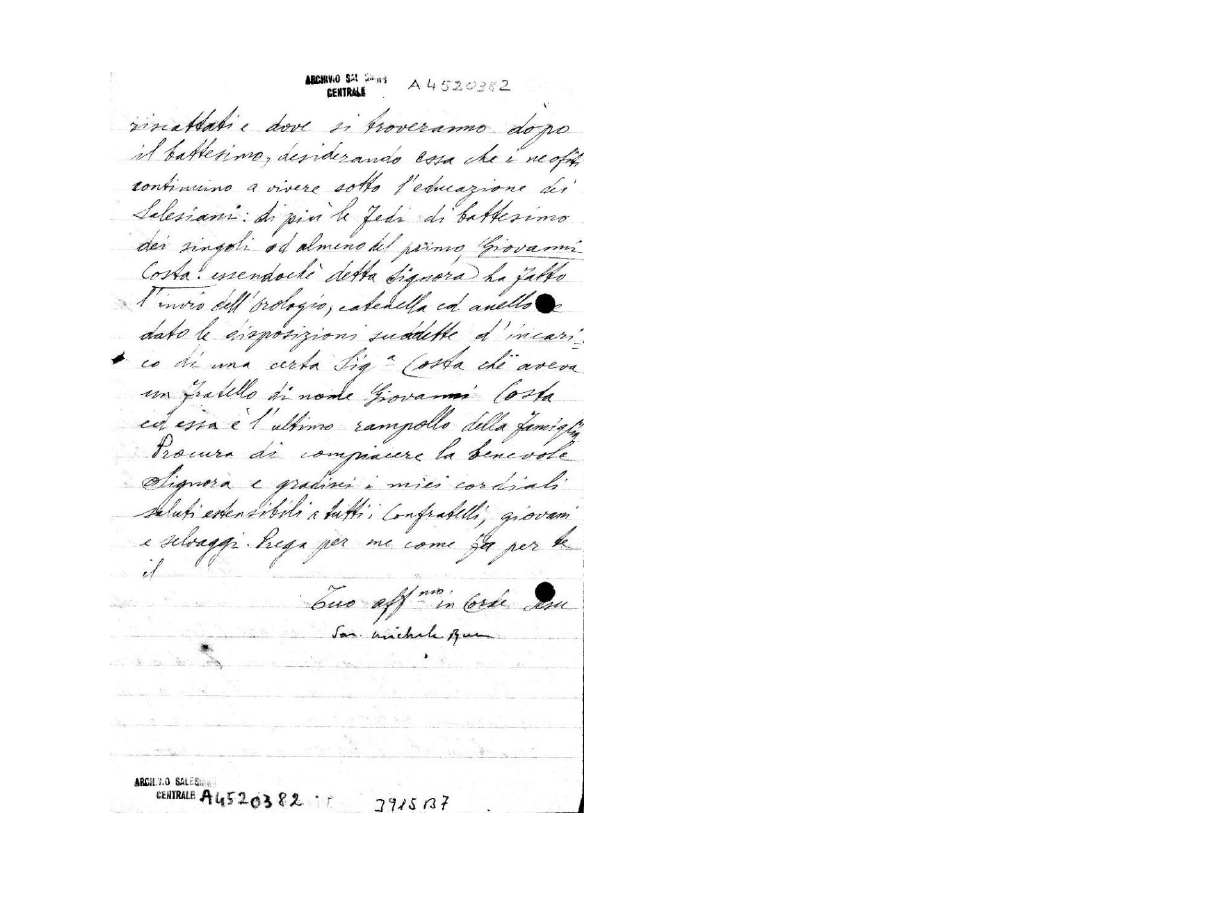 ARCHIVIO SAL
CENTRALE
A4520382
riscattati e dove si troveranno dopo
il battesimo, desiderando essa che i neofiti
continuino a vivere sotto l'educazione dei
Salesiani: di più le fedi di battesimo
dei singoli od almeno del primo, Giovanni
Costa: essendochè detta Signora ha fatto
l'invio dell'orologio, catenella ed anello e
dato le disposizioni suddette d'incari-
co di una certa Sig.a Costa che aveva
un fratello di nome Giovanni Costa
ed essa è l'ultimo rampollo della famiglia
Procura di compiacere la benevole
Signora e gradisci i miei cordiali
saluti estensibili a tutti i Confratelli, giovani
e selvaggi. Prega per me come fa per te
il
Tuo aff.mo in Corde Jesu
Sac. Michele Rua
ARCHIVIO SALES
CENTRALE A4520382
3915B7